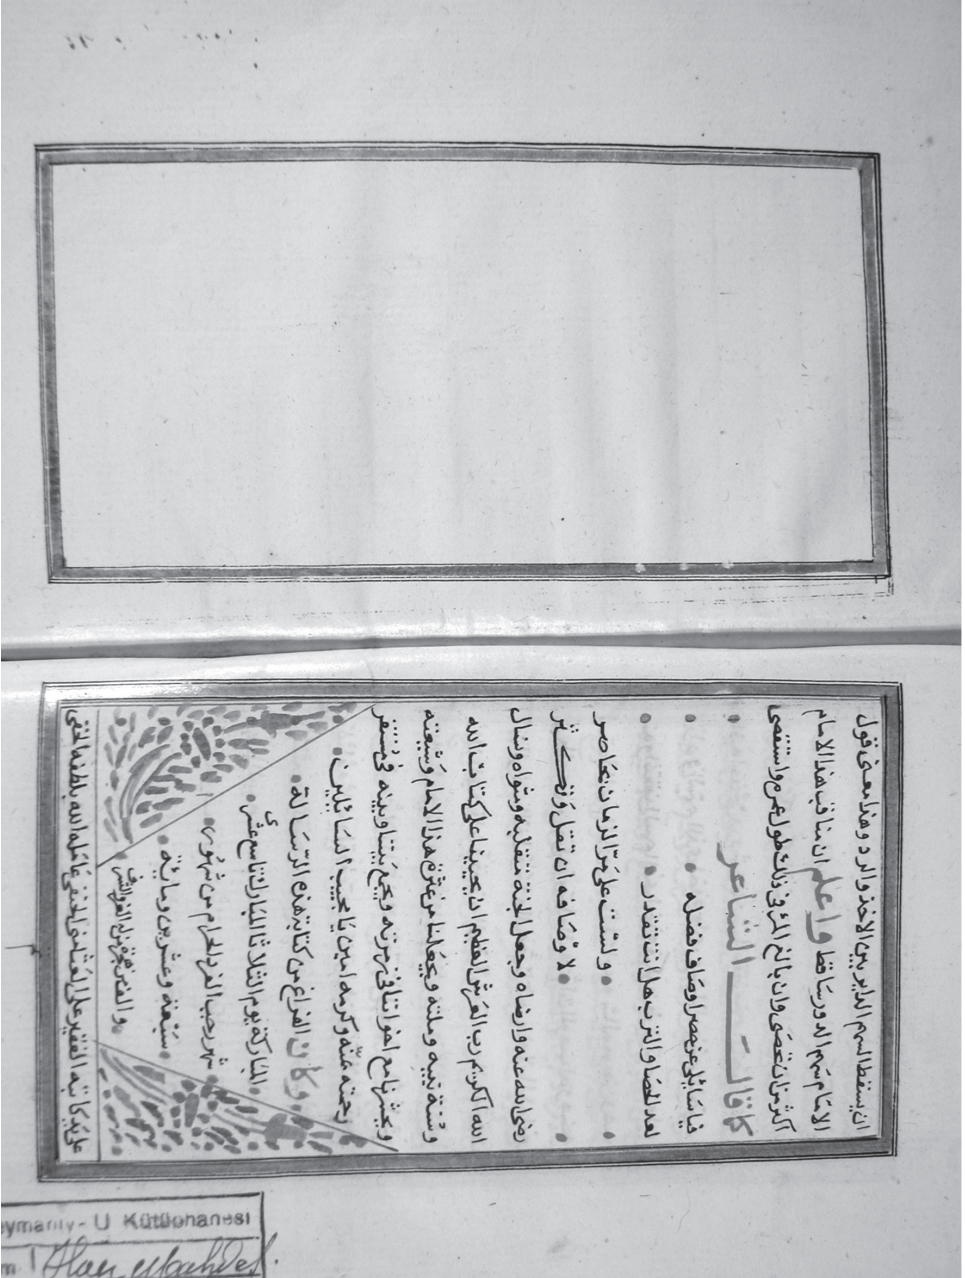 ان يسقط السهم الداير بين الاخذ والرد وهذا معنى قول
الامام سهم الدور ساقط واعلم ان مناقب هذا الامام
اكثر من ان تحصى وان بالغ المرء في ذلك طول عمره واستقصى
كما قالــــت الشاعر
فيا سائلي عن حصر اوصاف فضله
لعد الحصا والترب هل انت تقدر
ولست على مر الزمان بحاصر
لاوصافه ان تقل او تكــثر
رضي الله عنه وارضاه وجعل الجنة متقلبه ومثواه ونسال
الله الكريم رب العرش العظيم ان يحيينا على كتاب الله
وسنة نبيه وملته ويجعلنا من هذا الامام وشيعته
ويحشرنا مع اخواننا في زمرته ويجمع بيننا وبينه في مستقر
رحمته بمنه وكرمه امين يا مجيب السايلين
وكان الفراغ من كتابة هذه الرسالة
المباركة يوم الثلاثا المبارك تاسع عشرى
شهر رجب الفرد الحرام من شهور
سبعة وعشرين وماية
والف من هجرة من له العز والشرف
على يد كاتبه الفقير علي العثماني الحنفي عامله الله بلطفه الخفي
eymaniy - U Kütüphanesi